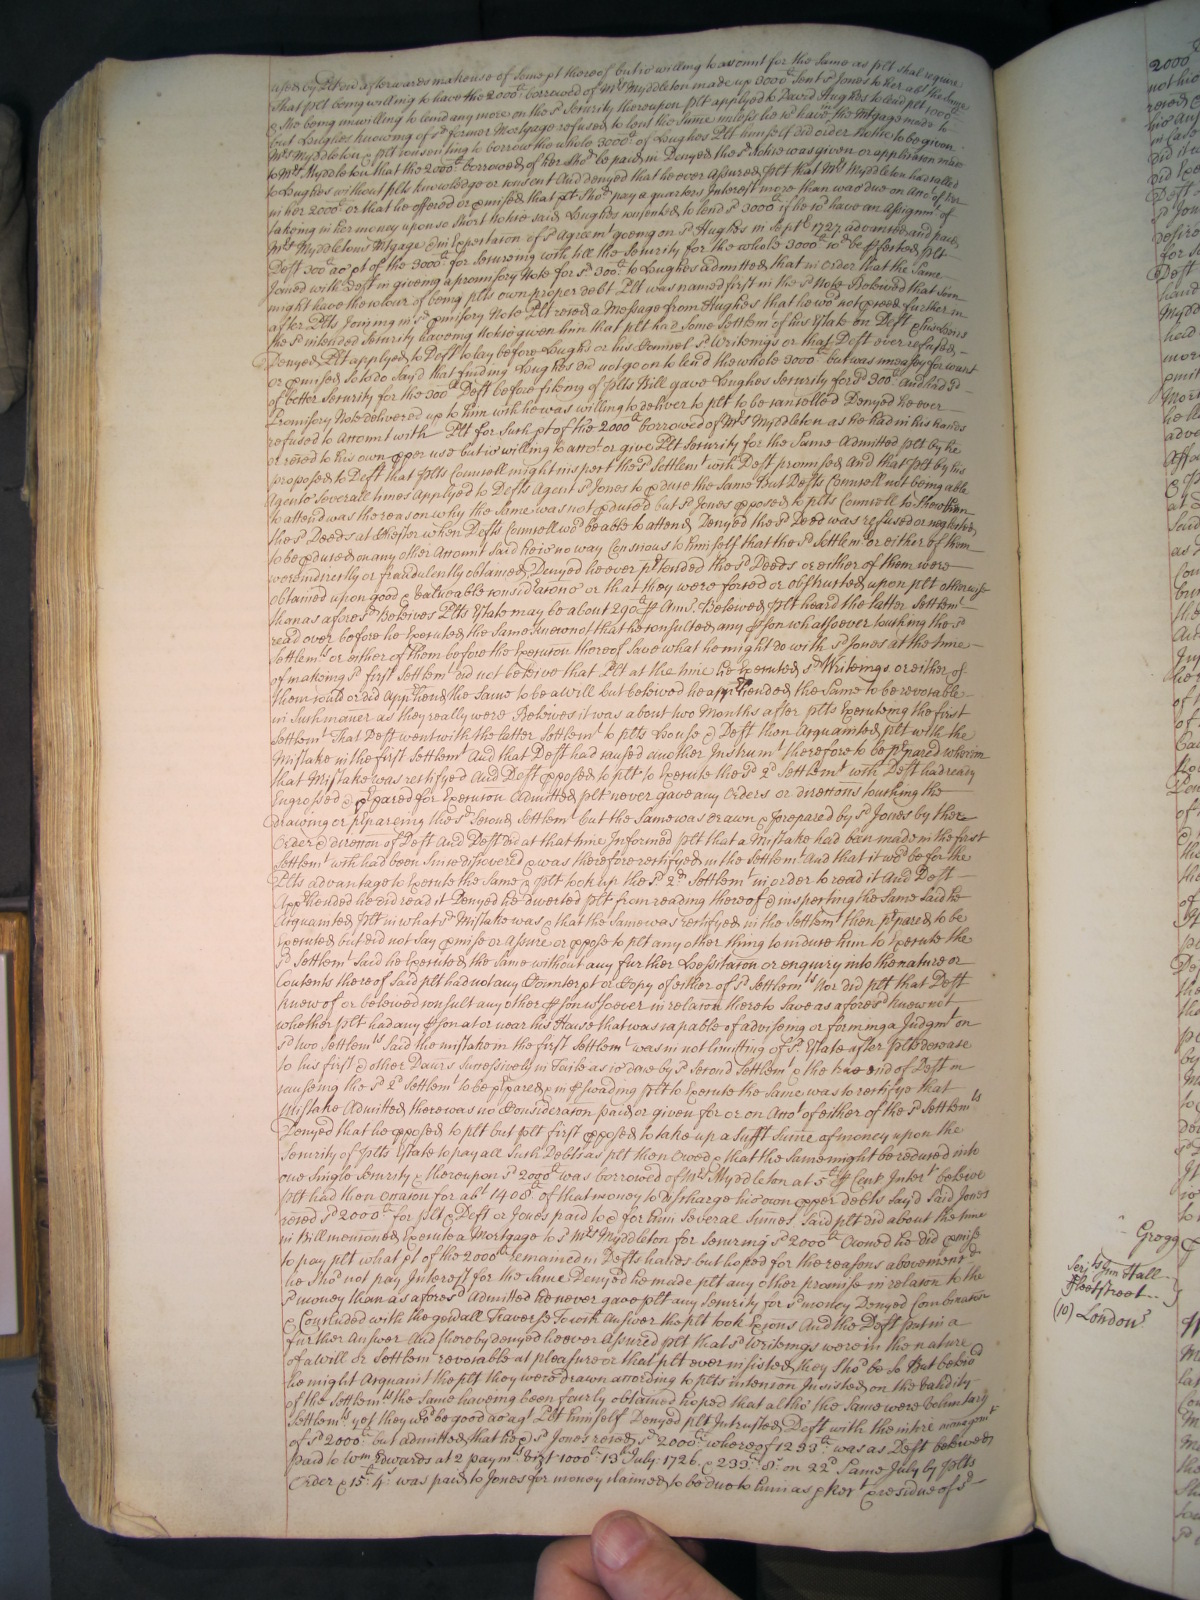 used by Plt and afterwards make use of some pt thereof but is willing to account for the same as plt shal require
That plt being willing to have the 2000£ borrowed of Mrs Myddleton made up 3000£ sent sd Jones to her abt the same
& She being unwilling to lend any more on the sd Security thereupon plt applyed to David Hughes to lend plt 1000£
but Hughes knowing of sd former Mortgage refused to lent the same unless he wd have the Mtgage made to
Mrs Myddleton & plt consenting to borrow the whole 3000£ of Hughes Plt himself did order Notice to be given
to Mrs Myddleton that the 2000£ borrowed of her Shod be paid in Denyed the sd Notice was given or application made
to Hughes without plts knowledge or consent And denyed that he ever Assured plt that Mrs Myddleton had called
in her 2000£ or that he offered or pmised that plt Shod pay a quarters Interest more than was due on Acct of her
taking in her money upon so short Notice said Hughes consented to lend sd 3000£ if he wd have an Assignmt of
Mrs Myddletons Mtgage & in Expectation of sd Agreemt going on sd Hughes in Septr 1727 advanced and paid
Deft 300£ as pt of the 3000£ for securing wch till the Security for the whole 3000£ wd be pfected plt
Joined with deft in giveing a promisory Note for sd 300£ to Hughes admitted that in order that the same
might have the colour of being plts own proper debt Plt was named first in the sd Note Beleived that soon
after Plts Joining in sd pmisory Note Plt reced a Message from Hughes that he wod not pceed further in
the sd intended Security haveing Notice given him that plt had some Settlemt of his Estate on Deft & his Sons
Denyed Plt applyed to Deft to lay before Hughs or his Councel sd Writeings or that Deft ever refused
or pmised so to do Sayd that finding Hughes did not go on to lend the whole 3000£ but was uneasy for want
of better Security for the 300£ Deft before fileing of plts Bill gave Hughes Security for sd 300£ and had sd
Promisory Note delivered up to him wch he was willing to deliver to plt to be cancelled Denyed he ever
refused to account with Plt for such pt of the 2000£ borrowed of Mrs Myddleton as he had in his hands
or reced to his own pper use but is willing to acct or give Plt security for the same Admitted plt by he
proposed to Deft that plts Councell might inspect the sd Settlemt wch Deft promised And that plt by his
Agents severall times Applyed to Defts Agent sd Jones to pduce the same But Defts Councell not being able
to attend was the reason why the same was not pduced but sd Jones pposed to plts Councell to shew them
the sd Deeds at Chester when Defts Councell wod be able to attend Denyed the sd Deed was refused or neglected
to be pduced on any other Account Said he is no way Conscious to himself that the sd Settlemts or either of them
were indirectly or fraudulently obtained Denyed he ever ptended the sd Deeds or either of them were
obtained upon good & valueable consideracons or that they were forced or obstructed upon plt otherwise
than as aforesd Beleives Plts Estate may be about 290£ p Ann. Beleived plt heard the latter Settlemt
read over before he Executed the same knew not that he consulted any pson whatsoever touching the sd
Settlemts or either of them before the Execution thereof save what he might do with sd Jones at the time
of makeing sd first Settlemt did not beleive that Plt at the time he Executed sd Writeings or either of
them could or did Apphend the same to be a will but beleived he apphended the same to be revocable
in such maner as they really were Beleives it was about two Months after plts Executeing the first
Settlemt That Deft went with the latter Settlemt to plts house & Deft then Acquainted plt with the
Mistake in the first Settlemt And that Deft had caused another Instrumt therefore to be ppared wherein
that Mistake was rectifyed And Deft pposed to plt to Execute the sd 2d Settlemt wch Deft had ready
Engrossed & ppared for Execution Admitted plt never gave any Orders or directions touching the
drawing or pparing the sd second Settlemt but the same was drawn & prepared by sd Jones by there
Order & direction of Deft And Deft did at that time Informed plt that a Mistake had been made in the first
Settlemt wch had been since discovered & was therefore rectifyed in the Settlemt And that it wod be for the
Plts advantage to Execute the same & plt took up the sd 2d Settlemt in order to read it And Deft
Apphended he did read it Denyed he diverted plt from reading thereof & inspecting the same said he
Acquainted plt in what sd Mistake was & that the same was rectifyed in the Settlemt then ppared to be
Executed but did not Say pmise or Assure or ppose to plt any other thing to induce him to Execute the
sd Settlemt said he Executed the same without any further Hessitation or enquiry into the nature or
Contents thereof said plt had not any Counterpt or Copy of either of sd Settlemts Nor did plt that Deft
knew of or beleived consult any other pson wtsoever in relacon thereto save as aforesd knew not
whether plt had any pson at or near his House that was capable of adviseing or forming a Judgmt on
sd two Settlemts Said the mistake in the first Settlemt was in not limitting of sd Estate after plts decease
to his first & other Daurs successively in Taile as is done by sd second Settlemt & the true end of Deft in
causeing the sd 2d Settlemt to be ppared & in pswading plt to Execute the same was to rectifye that
Mistake Admitted there was no Consideraton paid or given for or on Acct of either of the sd Settlemts
Denyed that he pposed to plt but plt first pposed to take up a sufft Sume of money upon the
Security of plts Estate to pay all such Debts as plt then owed & that the same might be reduced into
one single Security & thereupon sd 2000£ was borrowed of Mrs Myddleton at 5£ p Cent Interst beleive
plt had then occasion for abt 1400£ of that money to discharge his own pper debts Sayd Said Jones
reced sd 2000£ for plt & Deft or Jones paid to & for him several Sumes Said plt did about the time
in Bill mentioned Execute a Mortgage to sd Mrs Myddleton for secureing sd 2000£ Owned he did pmise
to pay plt what pt of the 2000£ remained in Defts hands but hoped for the reasons abovementd
he Shod not pay Interest for the same Denyed he made plt any other promise in relacon to the
sd money than as aforesd Admitted he never gave plt any security for sd money Denyed Combination
& Concluded with the generall Traverse To wch Answer the plt took Excons And the Deft put in a
further Answer And thereby denyed he ever Assured plt that sd Writeings were in the nature
of a will or Settlemt revocable at pleasure or that plt ever insisted they Shod be so But beleived
he might Acquaint the plt they were drawn according to plts intencon Insisted on the validity
of the Settlemts the same haveing been fairly obtained hoped that altho' the same were voluntary
Settlemts yet they wod be good as agt Plt himself Denyed plt Intrusted Deft with the intire managemt
of sd 2000£ but admitted that he & sd Jones reced sd 2000£ whereof 1233£ was as Deft beleived
paid to Wm Edwards at 2 paymts vizt 1000£ 13th July 1726 & 233£ 8s on 22d Same July by plts
Order & 15£ 4s was paid to Jones for money claimed to be due to him as pker & residue of sd
Grogg
Fleetstreet
(10) London